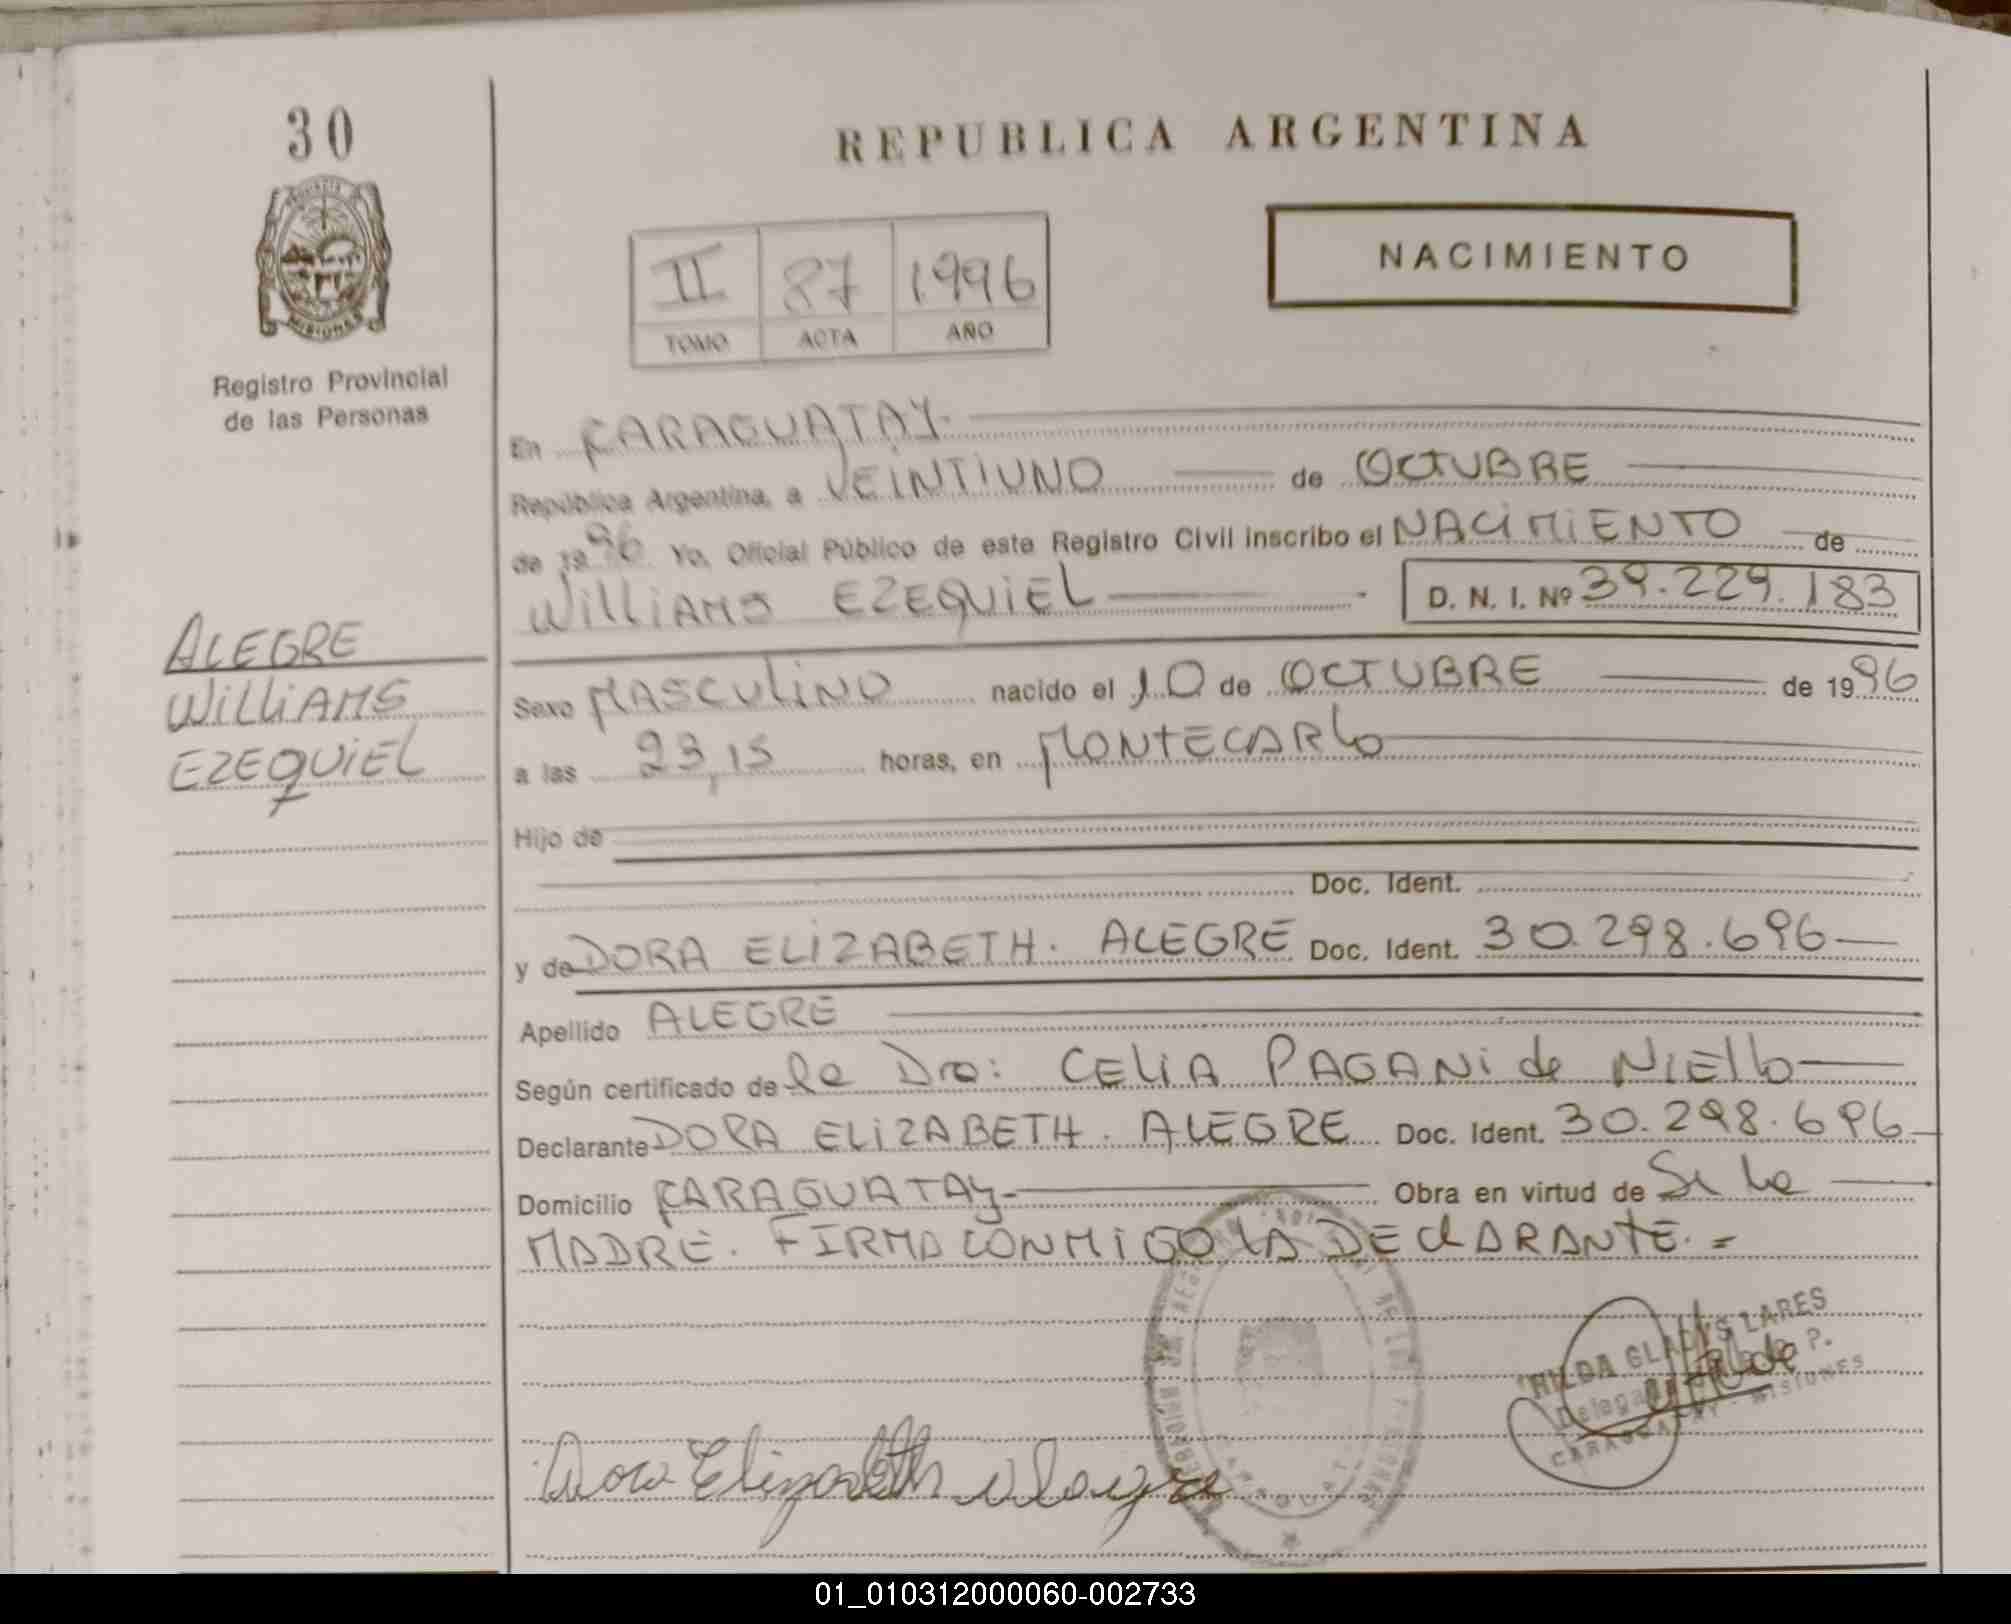 30
REPUBLICA ARGENTINA
MISIONES
II 87 1996
TOMO ACTA AÑO
NACIMIENTO
Registro Provincial
de las Personas
En CARAGUATAY.
República Argentina, a VEINTIUNO de OCTUBRE
de 1996 Yo, Oficial Público de este Registro Civil inscribo el NACIMIENTO de
WILLIAMS EZEQUIEL D. N. I. Nº 39.229.183
ALEGRE
WILLIAMS
EZEQUIEL
Sexo MASCULINO nacido el 10 de OCTUBRE de 1996
a las 23,15 horas, en MONTECARLO
Hijo de
Doc. Ident.
y de DORA ELIZABETH. ALEGRE Doc. Ident. 30.298.696
Apellido ALEGRE
Según certificado de la Dra: CELIA PAGANI de NIELLO
Declarante DORA ELIZABETH. ALEGRE Doc. Ident. 30.298.696
Domicilio CARAGUATAY Obra en virtud de Se la
MADRE. FIRMA CONMIGO LA DECLARANTE. =
HILDA GLADYS LARES
CARAGUATAY - MISIONES
Dora Elizabeth Alegre
01_010312000060-002733